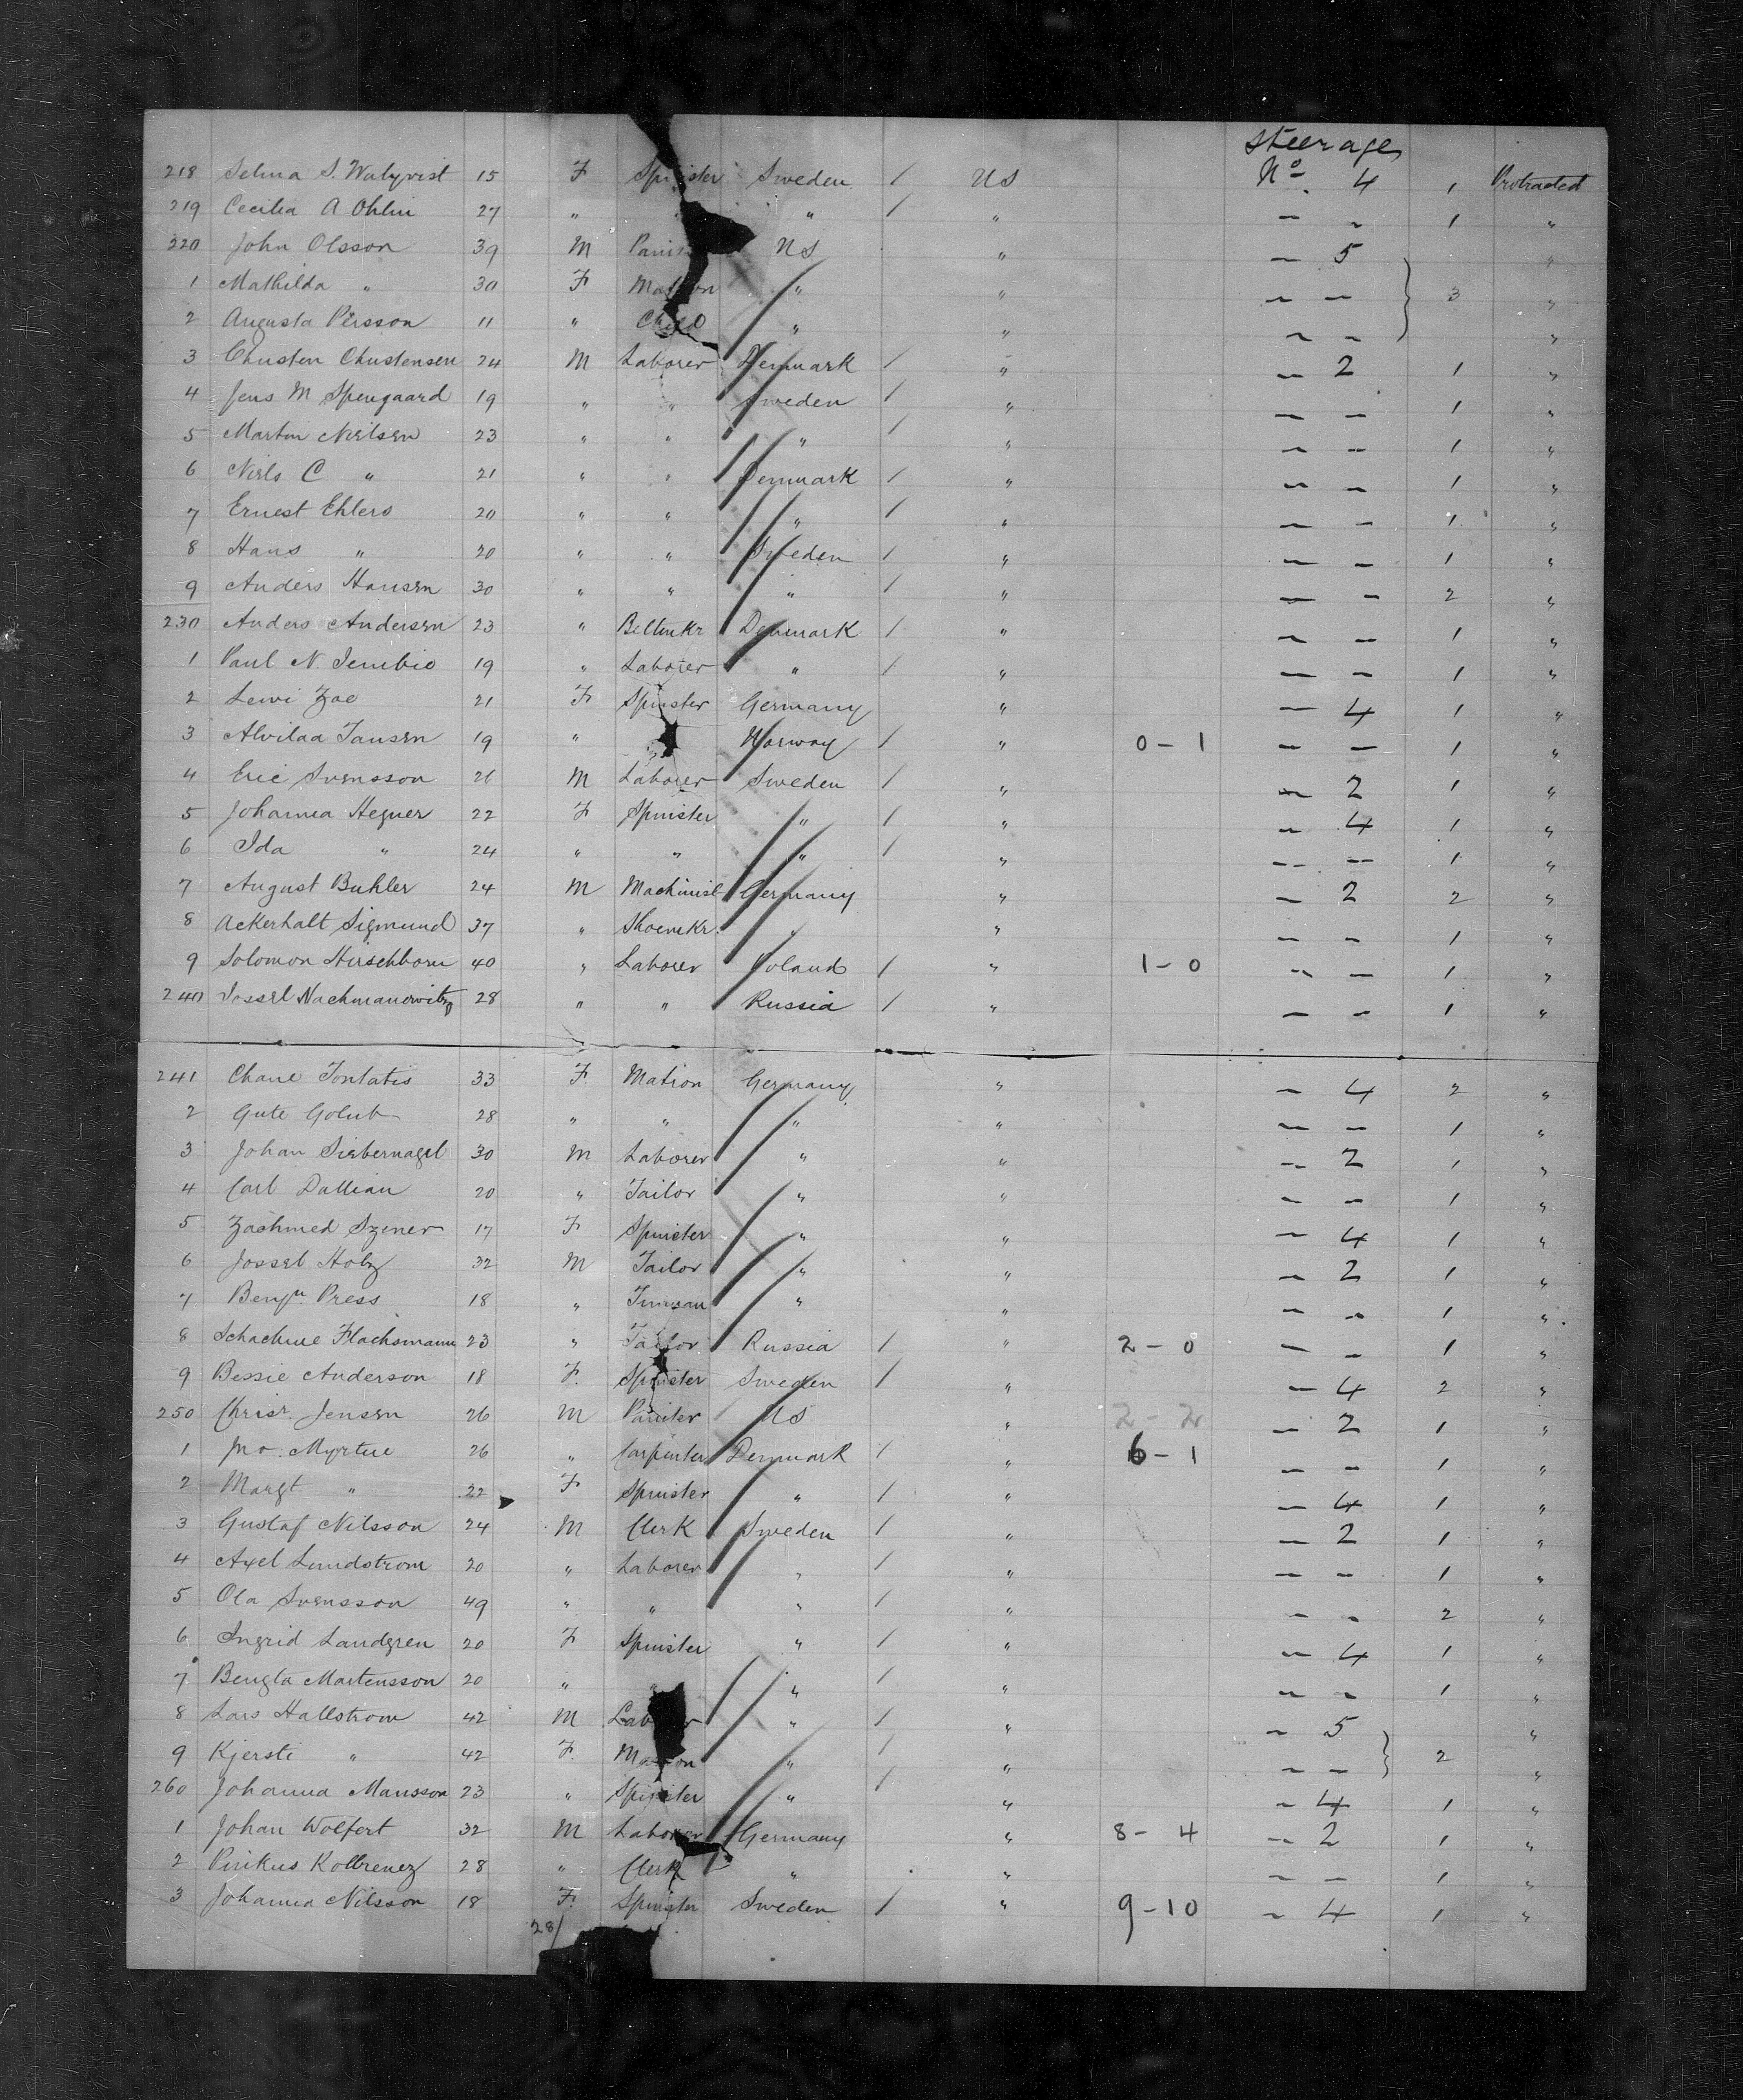 Steerage
218 Selma S. Walqvist 15 F Spinster Sweden / US No. 4 1 Protracted
219 Cecilia A Ohlin 27 " " " / " – " 1 "
220 John Olsson 39 M US " – 5 "
1 Mathilda " 30 F Matron " " – – 3 "
2 Augusta Persson 11 " Child " " – – "
3 Christen Christensen 24 M Laborer Denmark / " – 2 1 "
4 Jens M Spengaard 19 " " Sweden / " – – 1 "
5 Martin Nielsen 23 " " " / " – – 1 "
6 Niels C " 21 " " Denmark / " – – 1 "
7 Ernest Ehlers 20 " " " / " – – 1 "
8 Hans " 20 " " Sweden / " – – 1 "
9 Anders Hansen 30 " " " / " – – 2 "
230 Anders Andersen 23 " Denmark / " – – 1 "
1 Paul N. 19 " Laborer " / " – – 1 "
2 Lewi Zoe 21 F Spinster Germany " – 4 1 "
3 Alvilda Jansen 19 " " Norway / " 0 – 1 – – 1 "
4 Eric Svensson 26 M Laborer Sweden / " – 2 1 "
5 Johanna Hegner 22 F Spinster " / " – 4 1 "
6 Ida " 24 " " " / " – – 1 "
7 August Buhler 24 M Machinist Germany " – 2 2 "
8 Ackerhalt Sigmund 37 " Shoemkr. " " – – 1 "
9 Solomon Hirschhorn 40 " Laborer Poland / " 1 – 0 – – 1 "
240 Jossel Nachmanowitz 28 " " Russia / " – – 1 "
241 Chane Tontatis 33 F. Matron Germany " – 4 2 "
2 Gute Golub 28 " " " " – – 1 "
3 Johan Siebernagel 30 M Laborer " " – 2 1 "
4 Carl 20 " Tailor " " – – 1 "
5 Szener 17 F Spinster " " – 4 1 "
6 Jossel Holz 32 M Tailor " " – 2 1 "
7 Benjn. Press 18 " " " – – 1 "
8 Schachne Flachsmann 23 " Tailor Russia / " 2 – 0 – – 1 "
9 Bessie Anderson 18 F. Spinster Sweden / " – 4 2 "
250 Chrisr. Jensen 26 M Painter US " 2 – 2 – 2 1 "
1 Jno. Myrtue 26 " Carpenter Denmark / " 6 – 1 – – 1 "
2 Margt " 22 F Spinster " / " – 4 1 "
3 Gustaf Nilsson 24 M Clerk Sweden / " – 2 1 "
4 Axel Lundstrom 20 " Laborer " / " – – 1 "
5 Ola Svensson 49 " " " / " – – 2 "
6 Ingrid Landgren 20 F Spinster " / " – 4 1 "
7 Bengta Martensson 20 " " " / " – – 1 "
8 Lars Hallstrom 42 M Laborer " / " – 5 "
9 Kjersti " 42 F. Matron " / " – – 2 "
260 Johanna Mansson 23 " Spinster " / " – 4 1 "
1 Johan Wolfert 32 M Laborer Germany " 8 – 4 – 2 1 "
2 Pinkus Kolbrenez 28 " Clerk " " – – 1 "
3 Johanna Nilsson 18 F. Spinster Sweden / " 9 – 10 – 4 1 "
28/